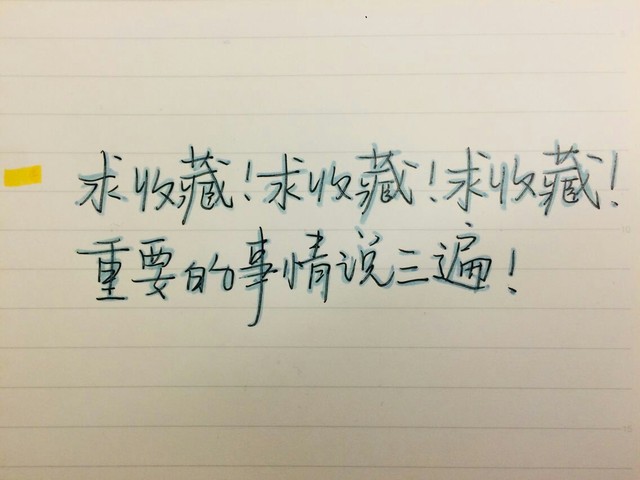 求收藏!求收藏!求收藏!
重要的事情说三遍!